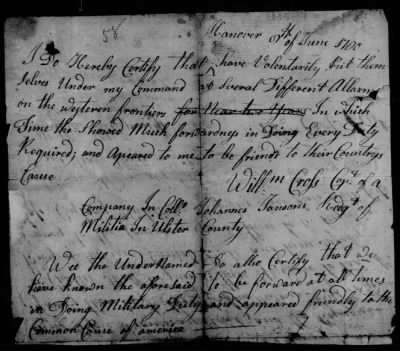 Hanover
of June
I Do Hereby Certify that have Voluntarily put them
selves Under my Command at Several Different Allarms
on the westeren frontiers for Near two Years In which
Time the Showed Much forwardness in Doing Every Duty
Required, and Apeared to me to be friends to their Countrys
Cause
Will:m Cross Cap:t of a
Company In Coll:o Johannes Jansons Redg:t of
Militia In Ulster County
Wee the UnderNamed Do allso Certify that we
have known the afore said to be forward at all times
in Doing Military Duty and appeared friendly to the
Common Cause of america